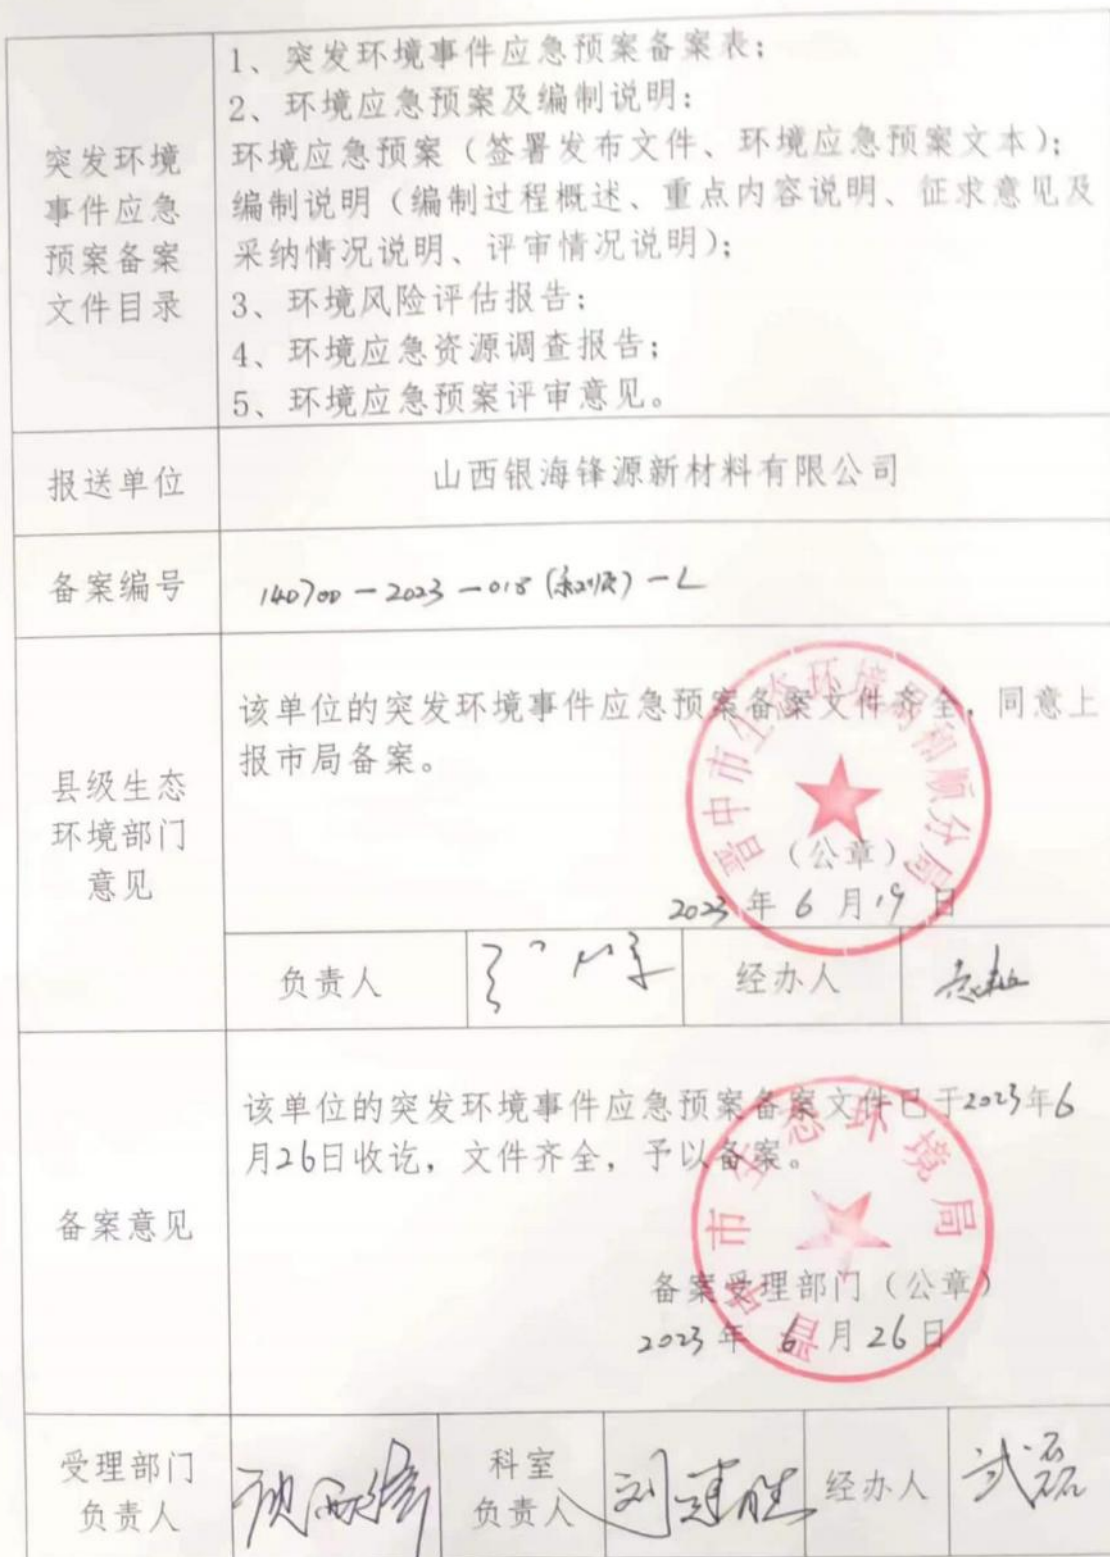 突发环境
事件应急
预案备案
文件目录
1、突发环境事件应急预案备案表；
2、环境应急预案及编制说明：
环境应急预案（签署发布文件、环境应急预案文本）；
编制说明（编制过程概述、重点内容说明、征求意见及
采纳情况说明、评审情况说明）；
3、环境风险评估报告；
4、环境应急资源调查报告；
5、环境应急预案评审意见。
报送单位
山西银海锋源新材料有限公司
备案编号
140700-2023-018(和顺)-L
县级生态
环境部门
意见
该单位的突发环境事件应急预案备案文件齐全，同意上
报市局备案。
晋中市生态环境局和顺分局
（公章）
2023年6月19日
负责人
经办人
备案意见
该单位的突发环境事件应急预案备案文件已于2023年6
月26日收讫，文件齐全，予以备案。
晋中市生态环境局
备案受理部门（公章）
2023年6月26日
受理部门
负责人
科室
负责人
刘建胜
经办人
武磊